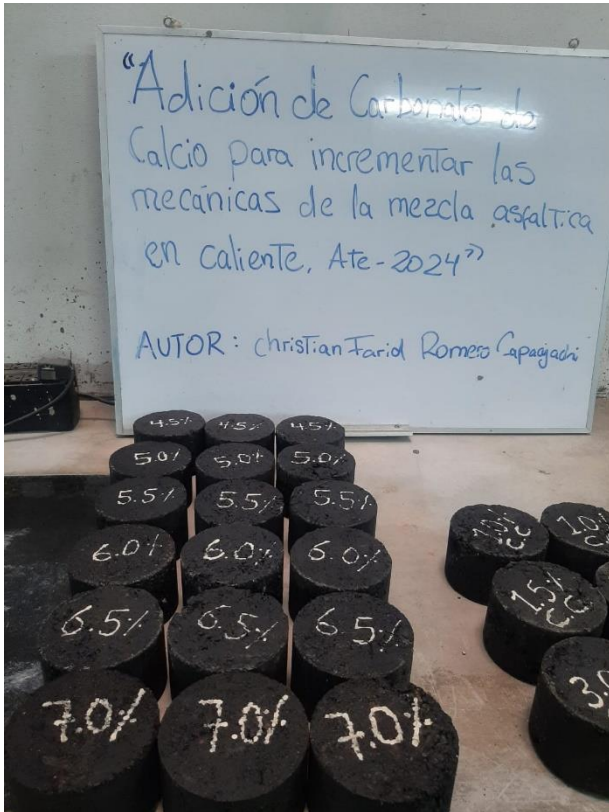 “Adición de Carbonato de
Calcio para incrementar las
mecánicas de la mezcla asfaltica
en caliente, Ate-2024”
AUTOR: christian Farid Romero
4.5% 4.5% 4.5%
5.0% 5.0% 5.0%
5.5% 5.5% 5.5%
6.0% 6.0% 6.0%
6.5% 6.5% 6.5%
7.0% 7.0% 7.0%
1.0% 1.0%
CC CC
1.5%
CC
3.0